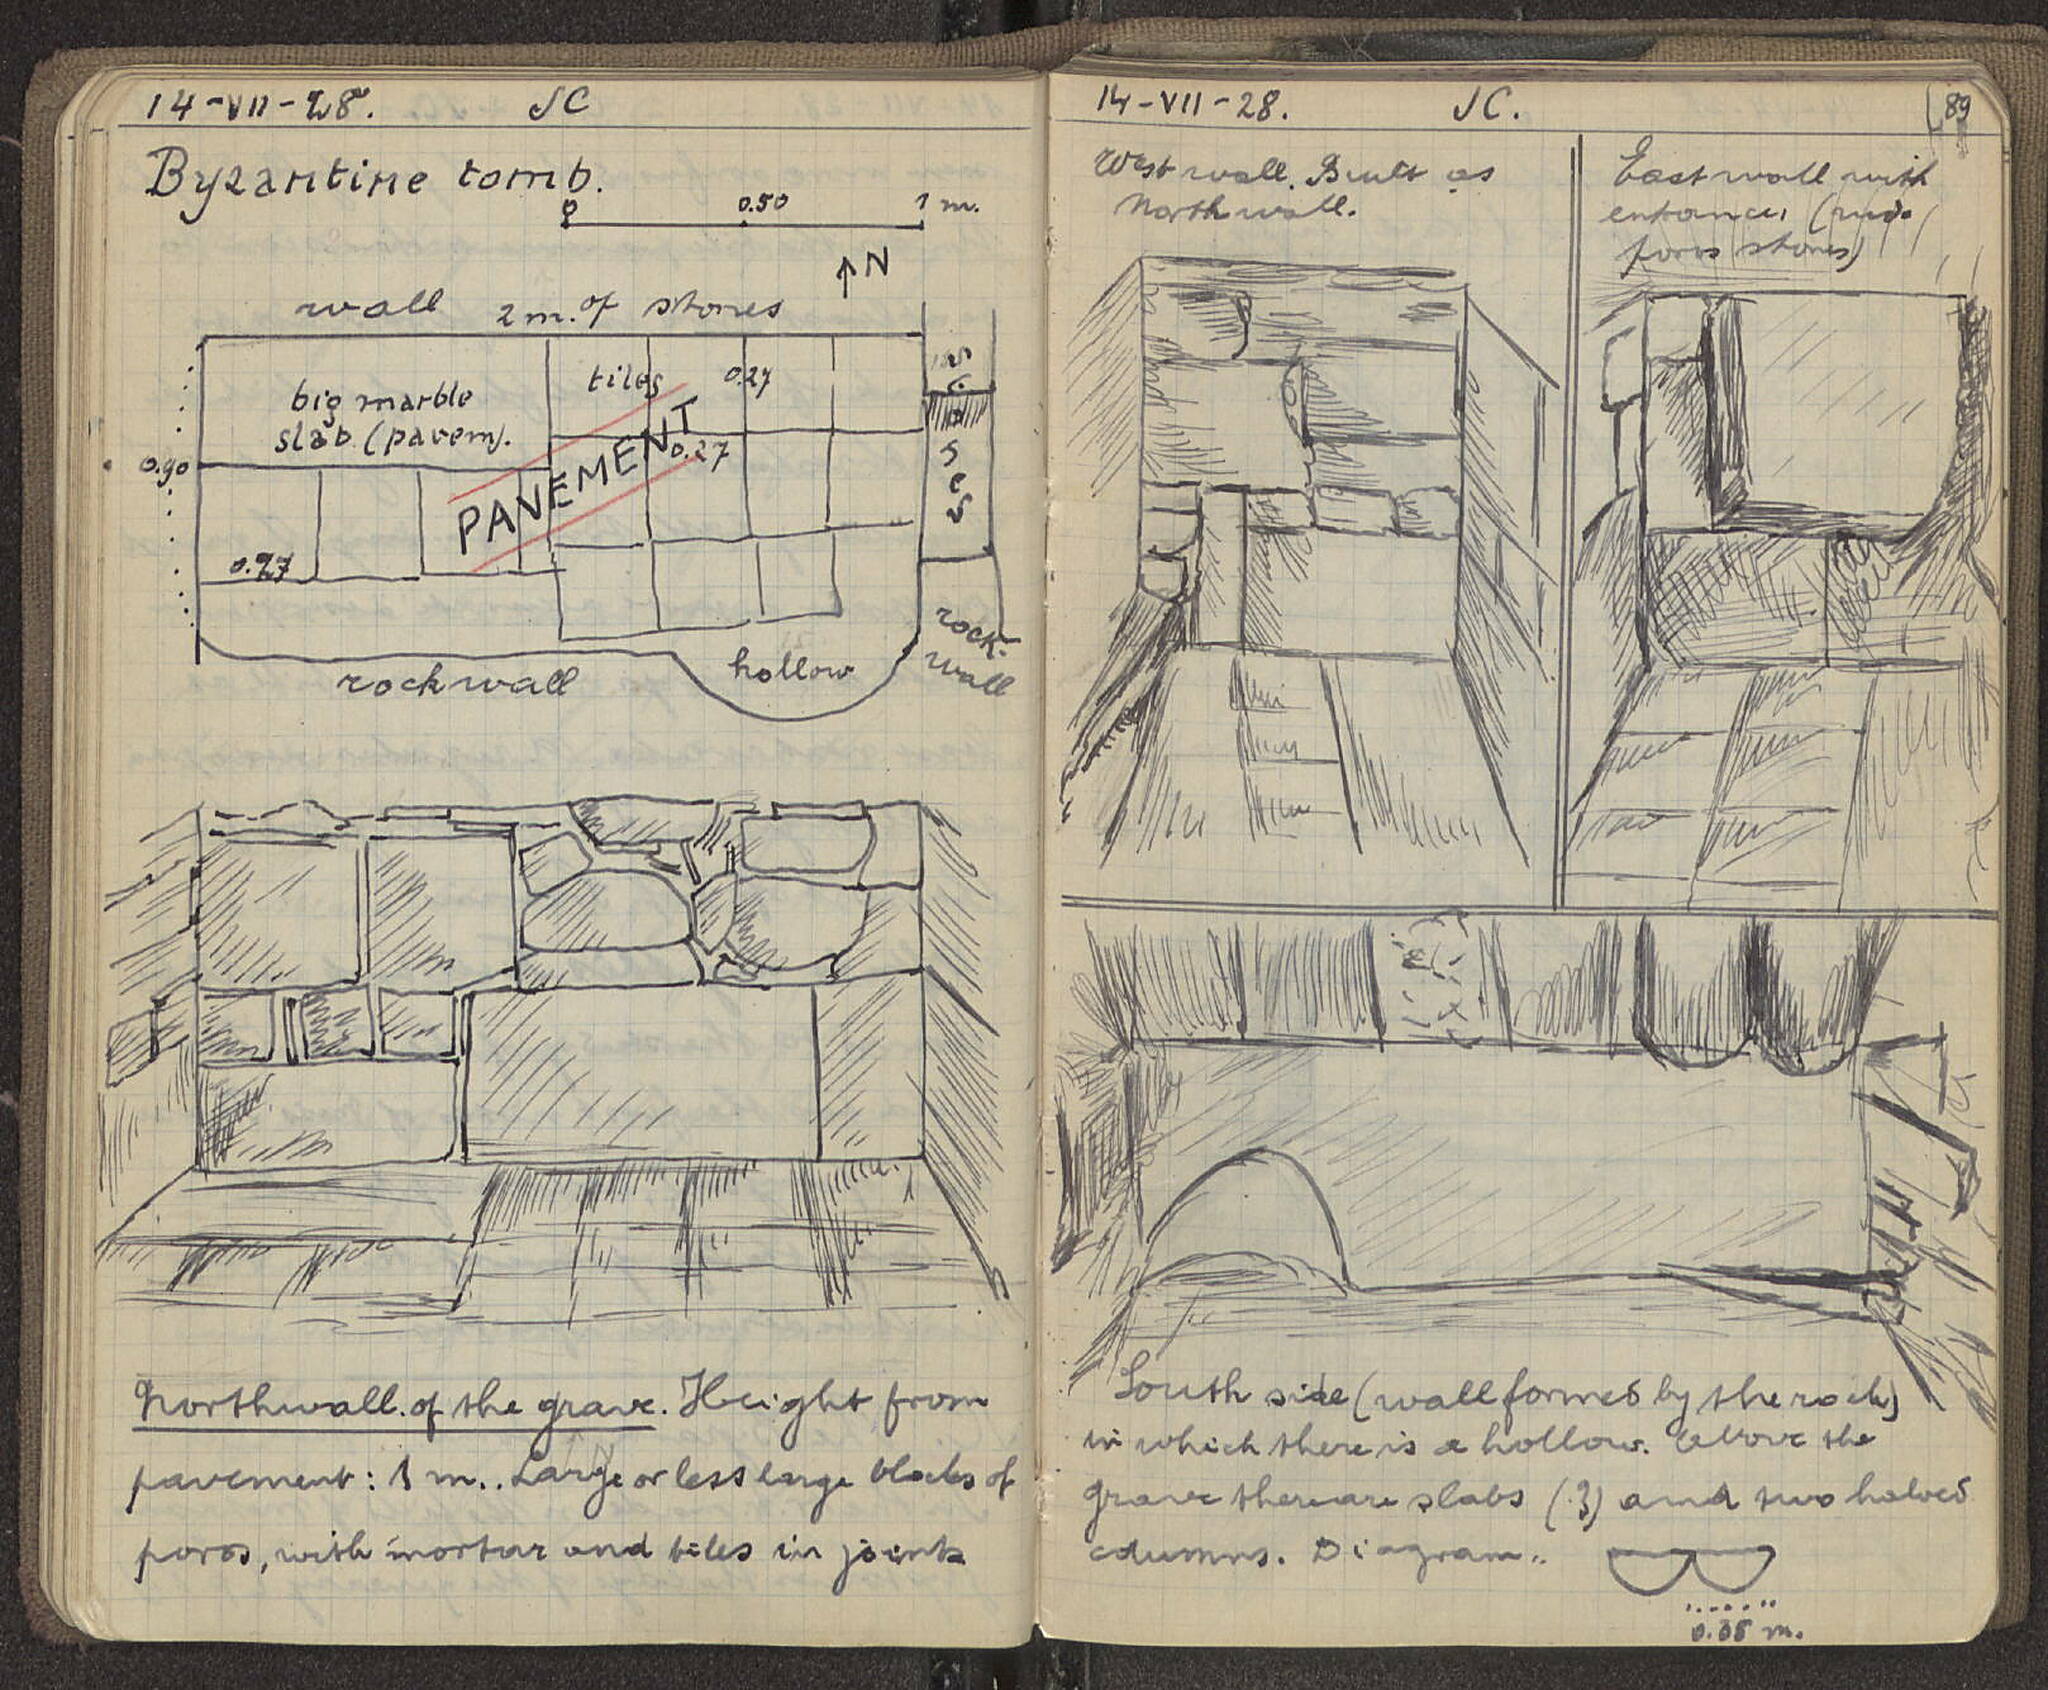 14-VII-28. JC
Byzantine tomb.
0 0.50 1 m.
↑N
wall 2 m. of stones
big marble
slab (pavem).
tiles 0.27
0.27
PAVEMENT
0.90
0.27
rockwall
hollow
rock-
wall
Northwall of the grave. Height from
pavement: 1 m.. Large or less large blocks of
poros, with mortar and tiles in joints
14-VII-28. JC. 89
West wall. Built as
North wall.
East wall with
entrance,
poros stones)
South side (wall formed by the rock)
in which there is a hollow. Above the
grave there are slabs (3) and two halved
columns. Diagram..
m.